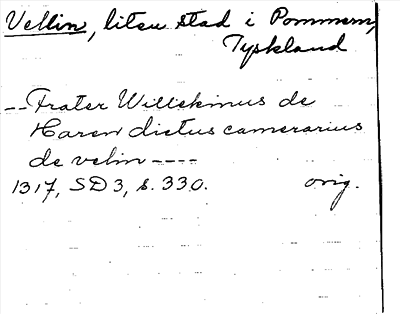 Vellin, liten stad i Pommern,
Tyskland
-- Frater Willekinus de
Haren dictus camerarius
de velin ----
1317, SD 3, s. 330. orig.